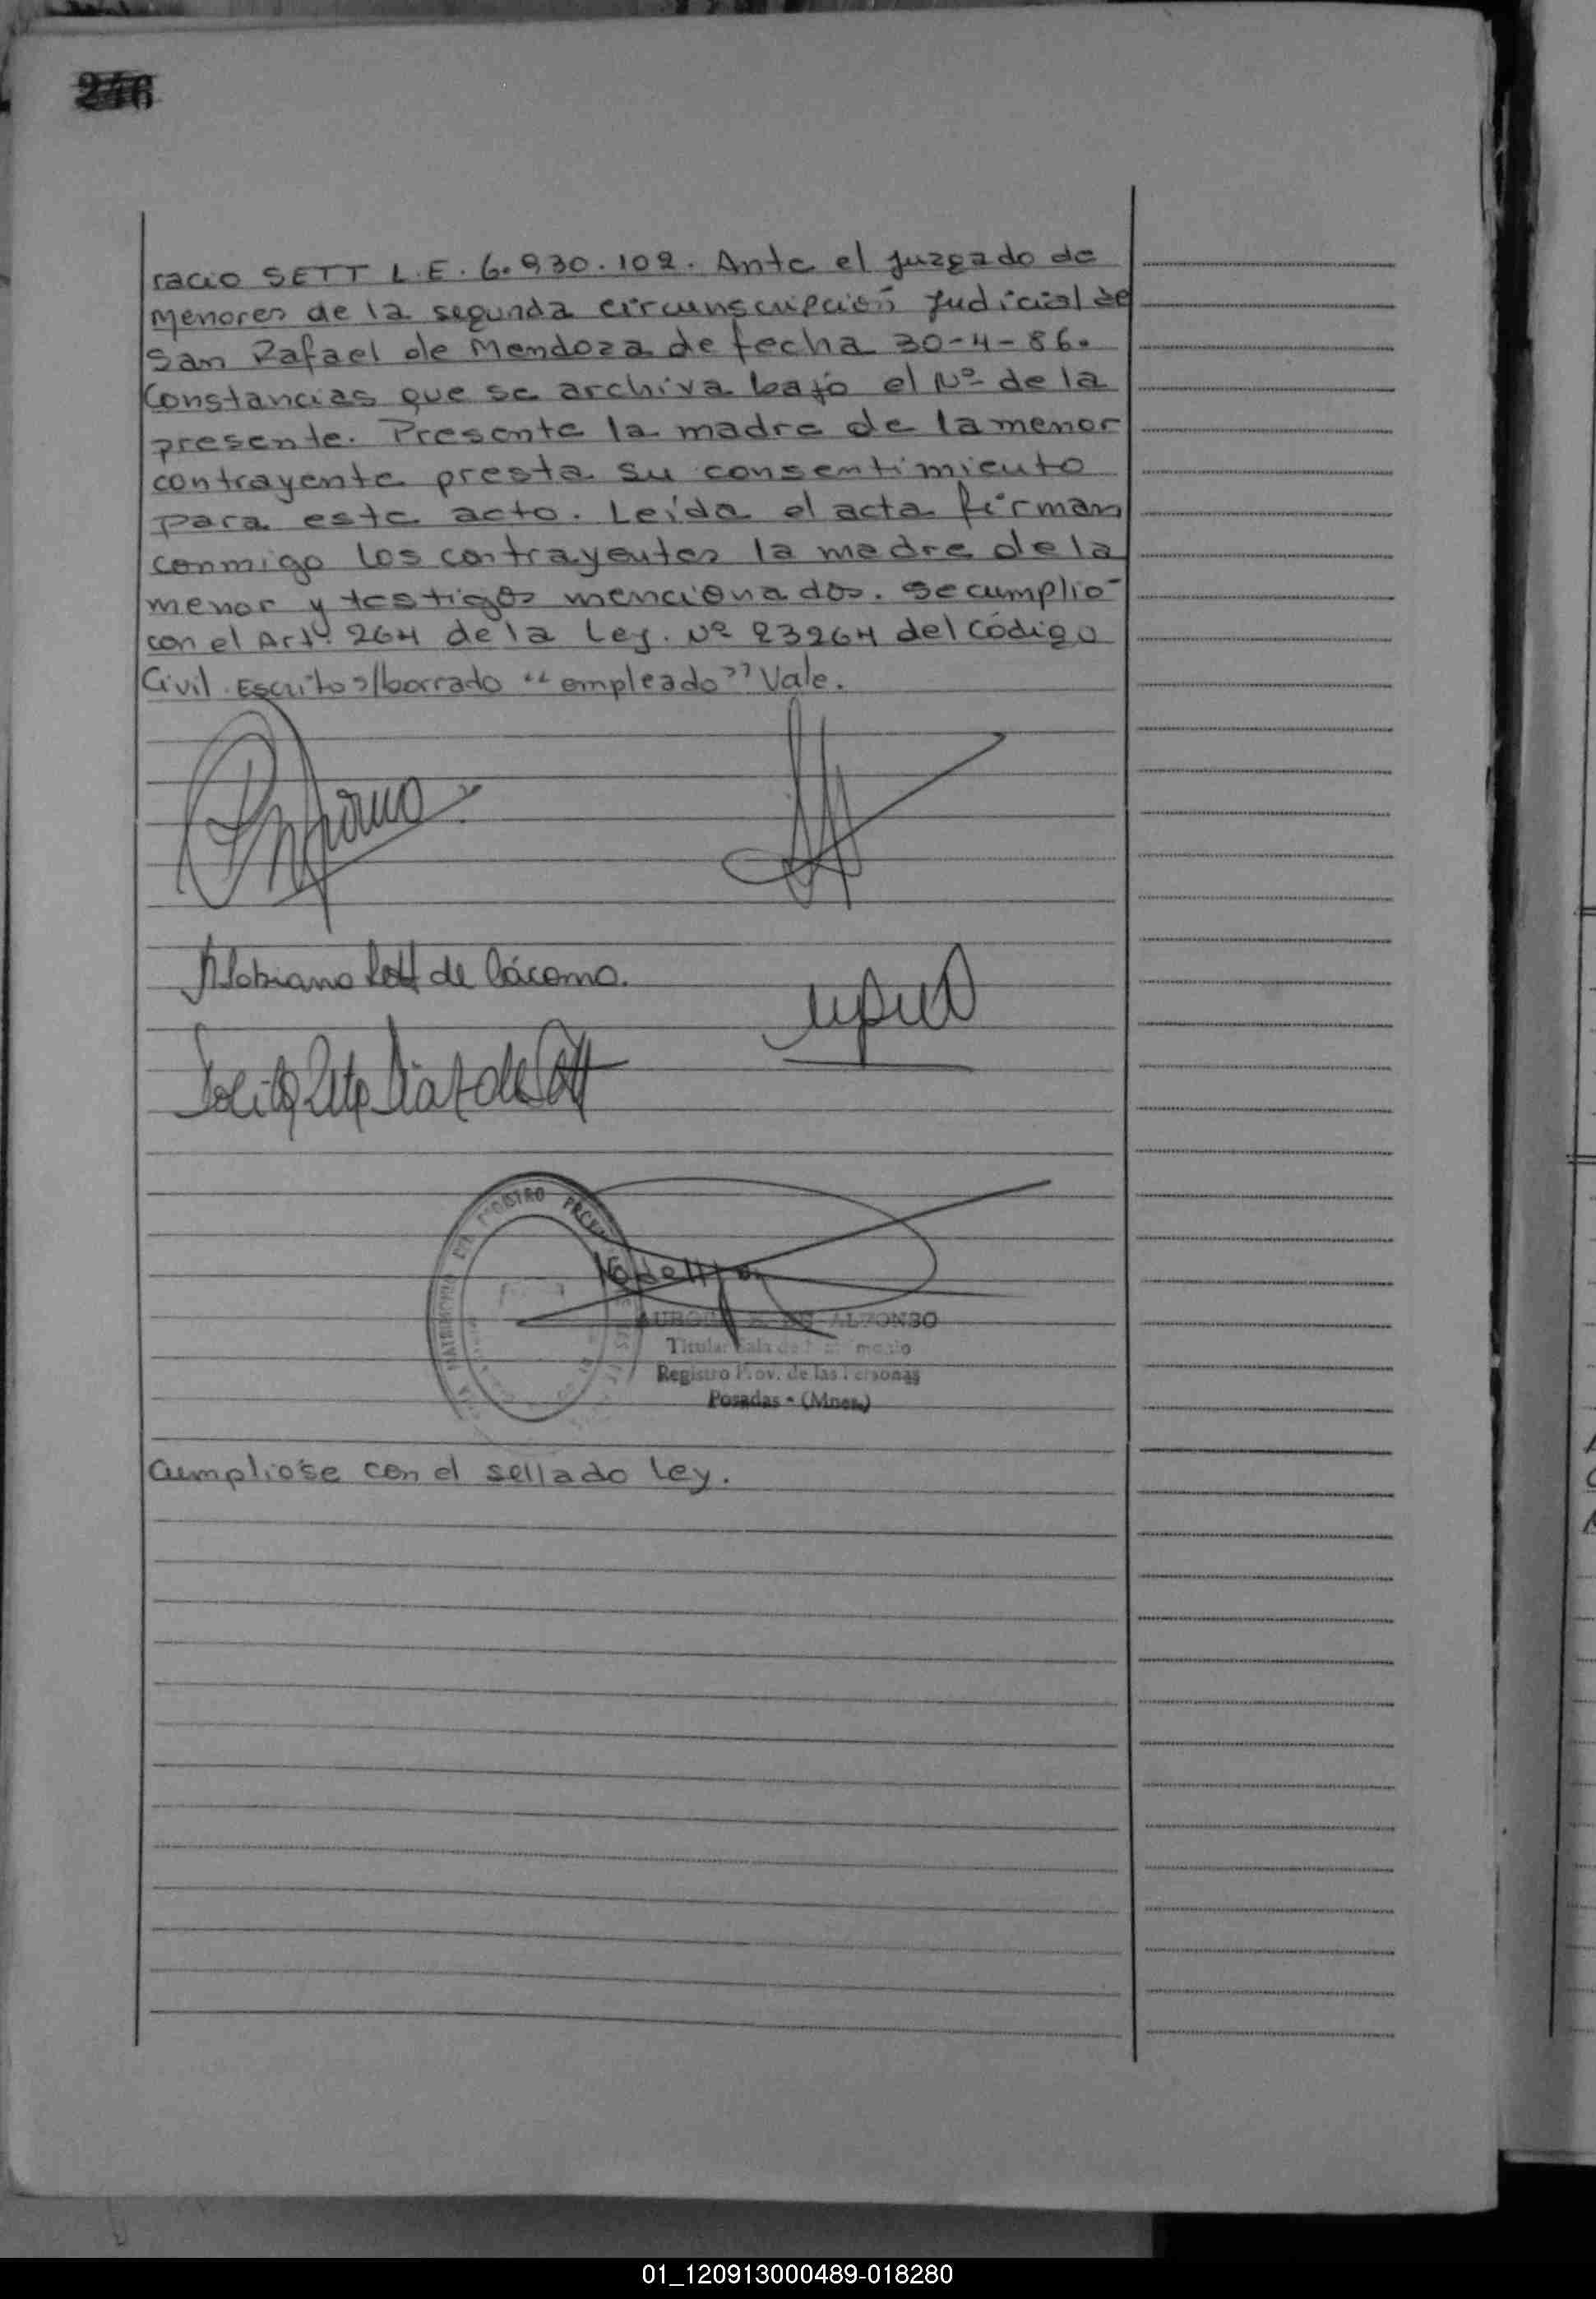 246
racio SETT L.E. 6.930.102. Ante el juzgado de
Menores de la segunda circunscripción Judicial de
San Rafael de Mendoza de fecha 30-4-86.
Constancias que se archiva bajo el Nº de la
presente. Presente la madre de la menor
contrayente presta su consentimiento
para este acto. Leída el acta firman
conmigo los contrayentes la madre de la
menor y testigos mencionados. Se cumplió
con el Art. 264 de la Ley. Nº 23264 del Código
Civil. Escrito s/borrado "empleado" Vale.
de Cácomo.
REGISTRO
MATRIMONIO
ALFONSO
Titular Sala de
Registro Prov. de las Personas
Posadas - (Mnes.)
Cumpliose con el sellado ley.
01_120913000489-018280